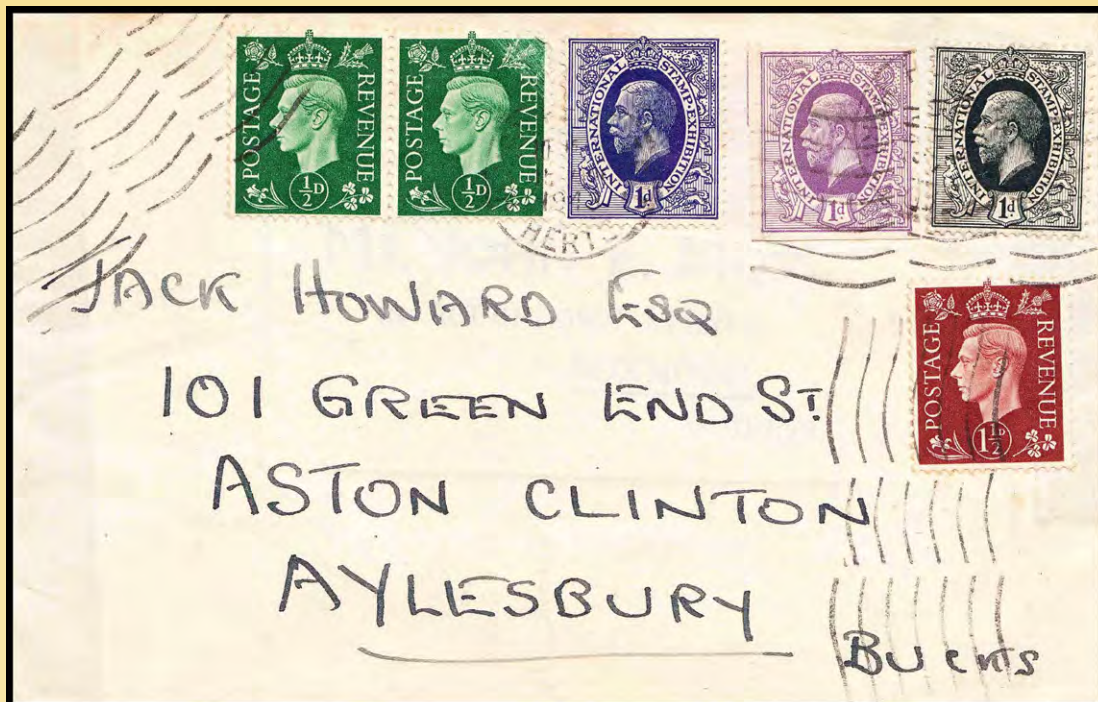 POSTAGE REVENUE
½D
POSTAGE REVENUE
½D
INTERNATIONAL STAMP·EXHIBITION
1d
INTERNATIONAL STAMP·EXHIBITION
1d
INTERNATIONAL STAMP·EXHIBITION
1d
HERTS
POSTAGE REVENUE
1½D
JACK HOWARD ESQ
101 GREEN END ST.
ASTON CLINTON
AYLESBURY
BUCKS